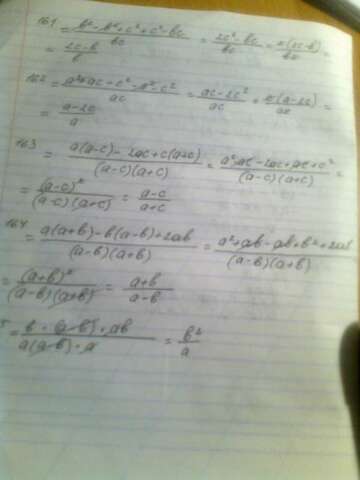 161 = (b² - b² + c² + c² - bc)/bc = (2c² - bc)/bc = c(2c-b)/bc =
= (2c-b)/b
162 = (a² + ac - c² - a² - c²)/ac = (ac - 2c²)/ac = c(a-2c)/ac =
= (a-2c)/a
163 = (a(a-c) - 2ac + c(a+c))/((a-c)(a+c)) = (a² - ac - 2ac + ac + c²)/((a-c)(a+c)) =
= (a-c)²/((a-c)(a+c)) = (a-c)/(a+c)
164
= (a(a+b) - b(a-b) + 2ab)/((a-b)(a+b)) = (a² + ab - ab + b² + 2ab)/((a-b)(a+b))
= (a+b)²/((a-b)(a+b)) = (a+b)/(a-b)
5 = (b · (a-b) · ab)/(a(a-b) · a) = b²/a